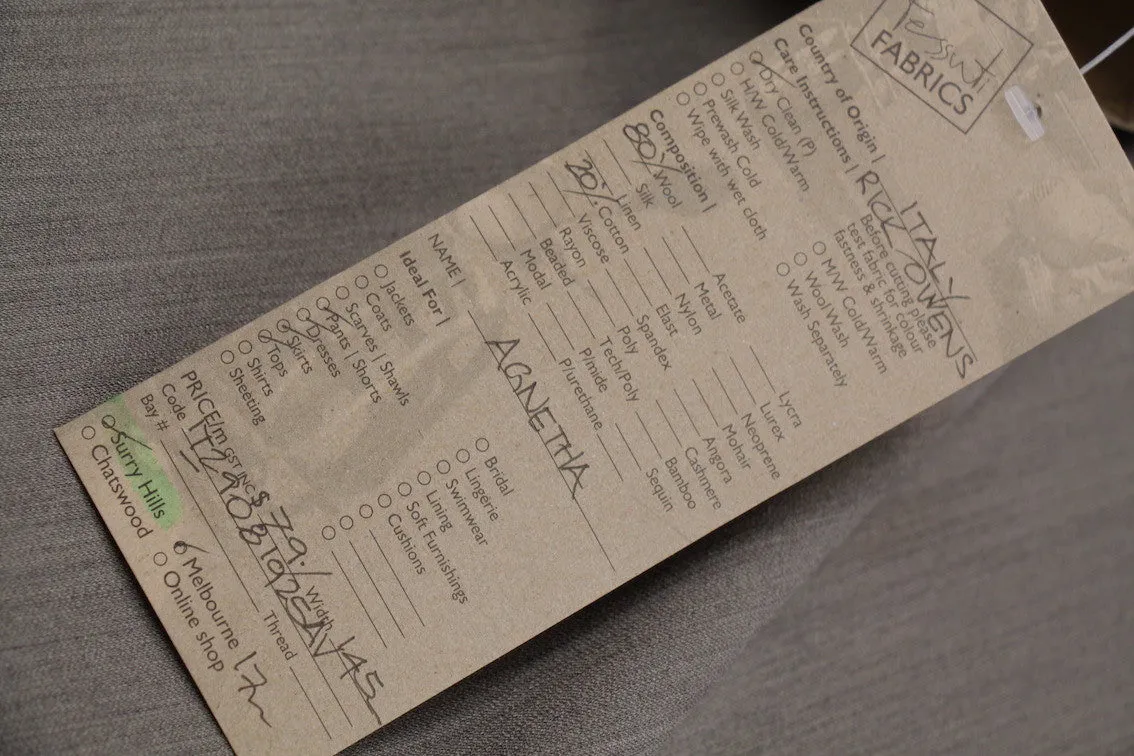 Tessuti
FABRICS
Country of Origin | ITALY
Care Instructions | RICK OWENS
Dry Clean (P)
H/W Cold/Warm
Silk Wash
Prewash Cold
Wipe with wet cloth
Before cutting please
test fabric for colour
fastness & shrinkage
M/W Cold/Warm
Wool Wash
Wash Separately
Composition |
80% Wool
Silk
Linen
20% Cotton
Viscose
Rayon
Beaded
Modal
Acrylic
Acetate
Metal
Nylon
Elast
Spandex
Poly
Tech/Poly
P/mide
P/urethane
Lycra
Lurex
Neoprene
Mohair
Angora
Cashmere
Bamboo
Sequin
NAME | AGNETHA
Ideal For |
Jackets
Coats
Scarves | Shawls
Pants | Shorts
Dresses
Skirts
Tops
Shirts
Sheeting
Bridal
Lingerie
Swimwear
Lining
Soft Furnishings
Cushions
PRICE/m GST INC $79./ Width 145
Code
Bay #
Thread
Surry Hills
Melbourne
Chatswood
Online shop